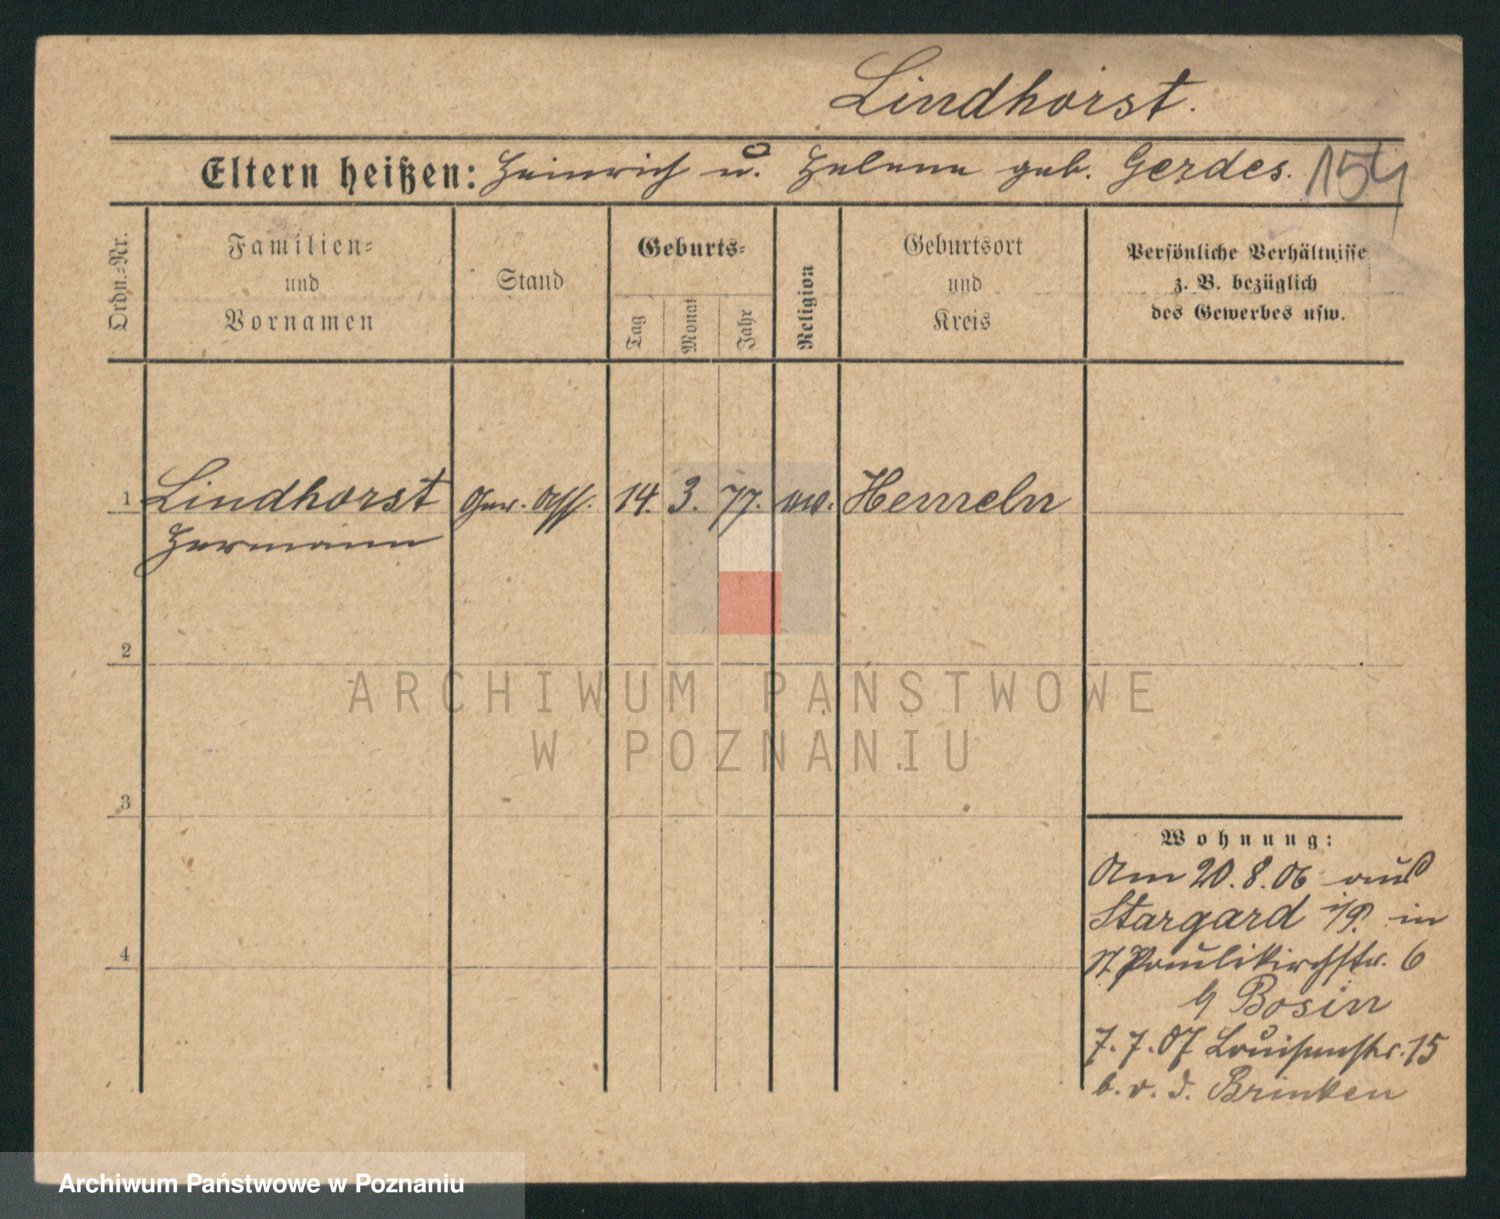 Lindhorst.
Eltern heißen: Heinrich u. Helene geb. Gerdes. 154
Ordn.=Nr.
Familien=
und
Vornamen
Stand
Geburts=
Tag
Monat
Jahr
Religion
Geburtsort
und
Kreis
Persönliche Verhältnisse
z. B. bezüglich
des Gewerbes usw.
1 Lindhorst Ger. Ass. 14. 3. 77. ev. Hemeln
Hermann
2
3
4
Wohnung:
Am 20.8.06 aus
Stargard i/P. in
St. Paulikirchstr. 6
Bosin
7.7.07 Louisenstr. 15
b. v. d. Brinken
ARCHIWUM PAŃSTWOWE
W POZNANIU
Archiwum Państwowe w Poznaniu